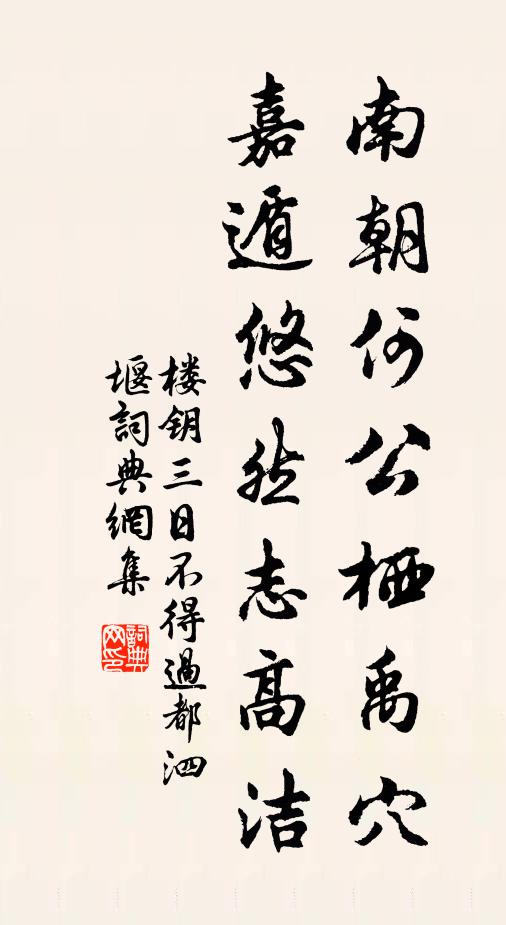 南朝何公栖禹穴
嘉遁悠然志高洁
楼钥三日不得過都泗
堰詞典網集
詞典网印